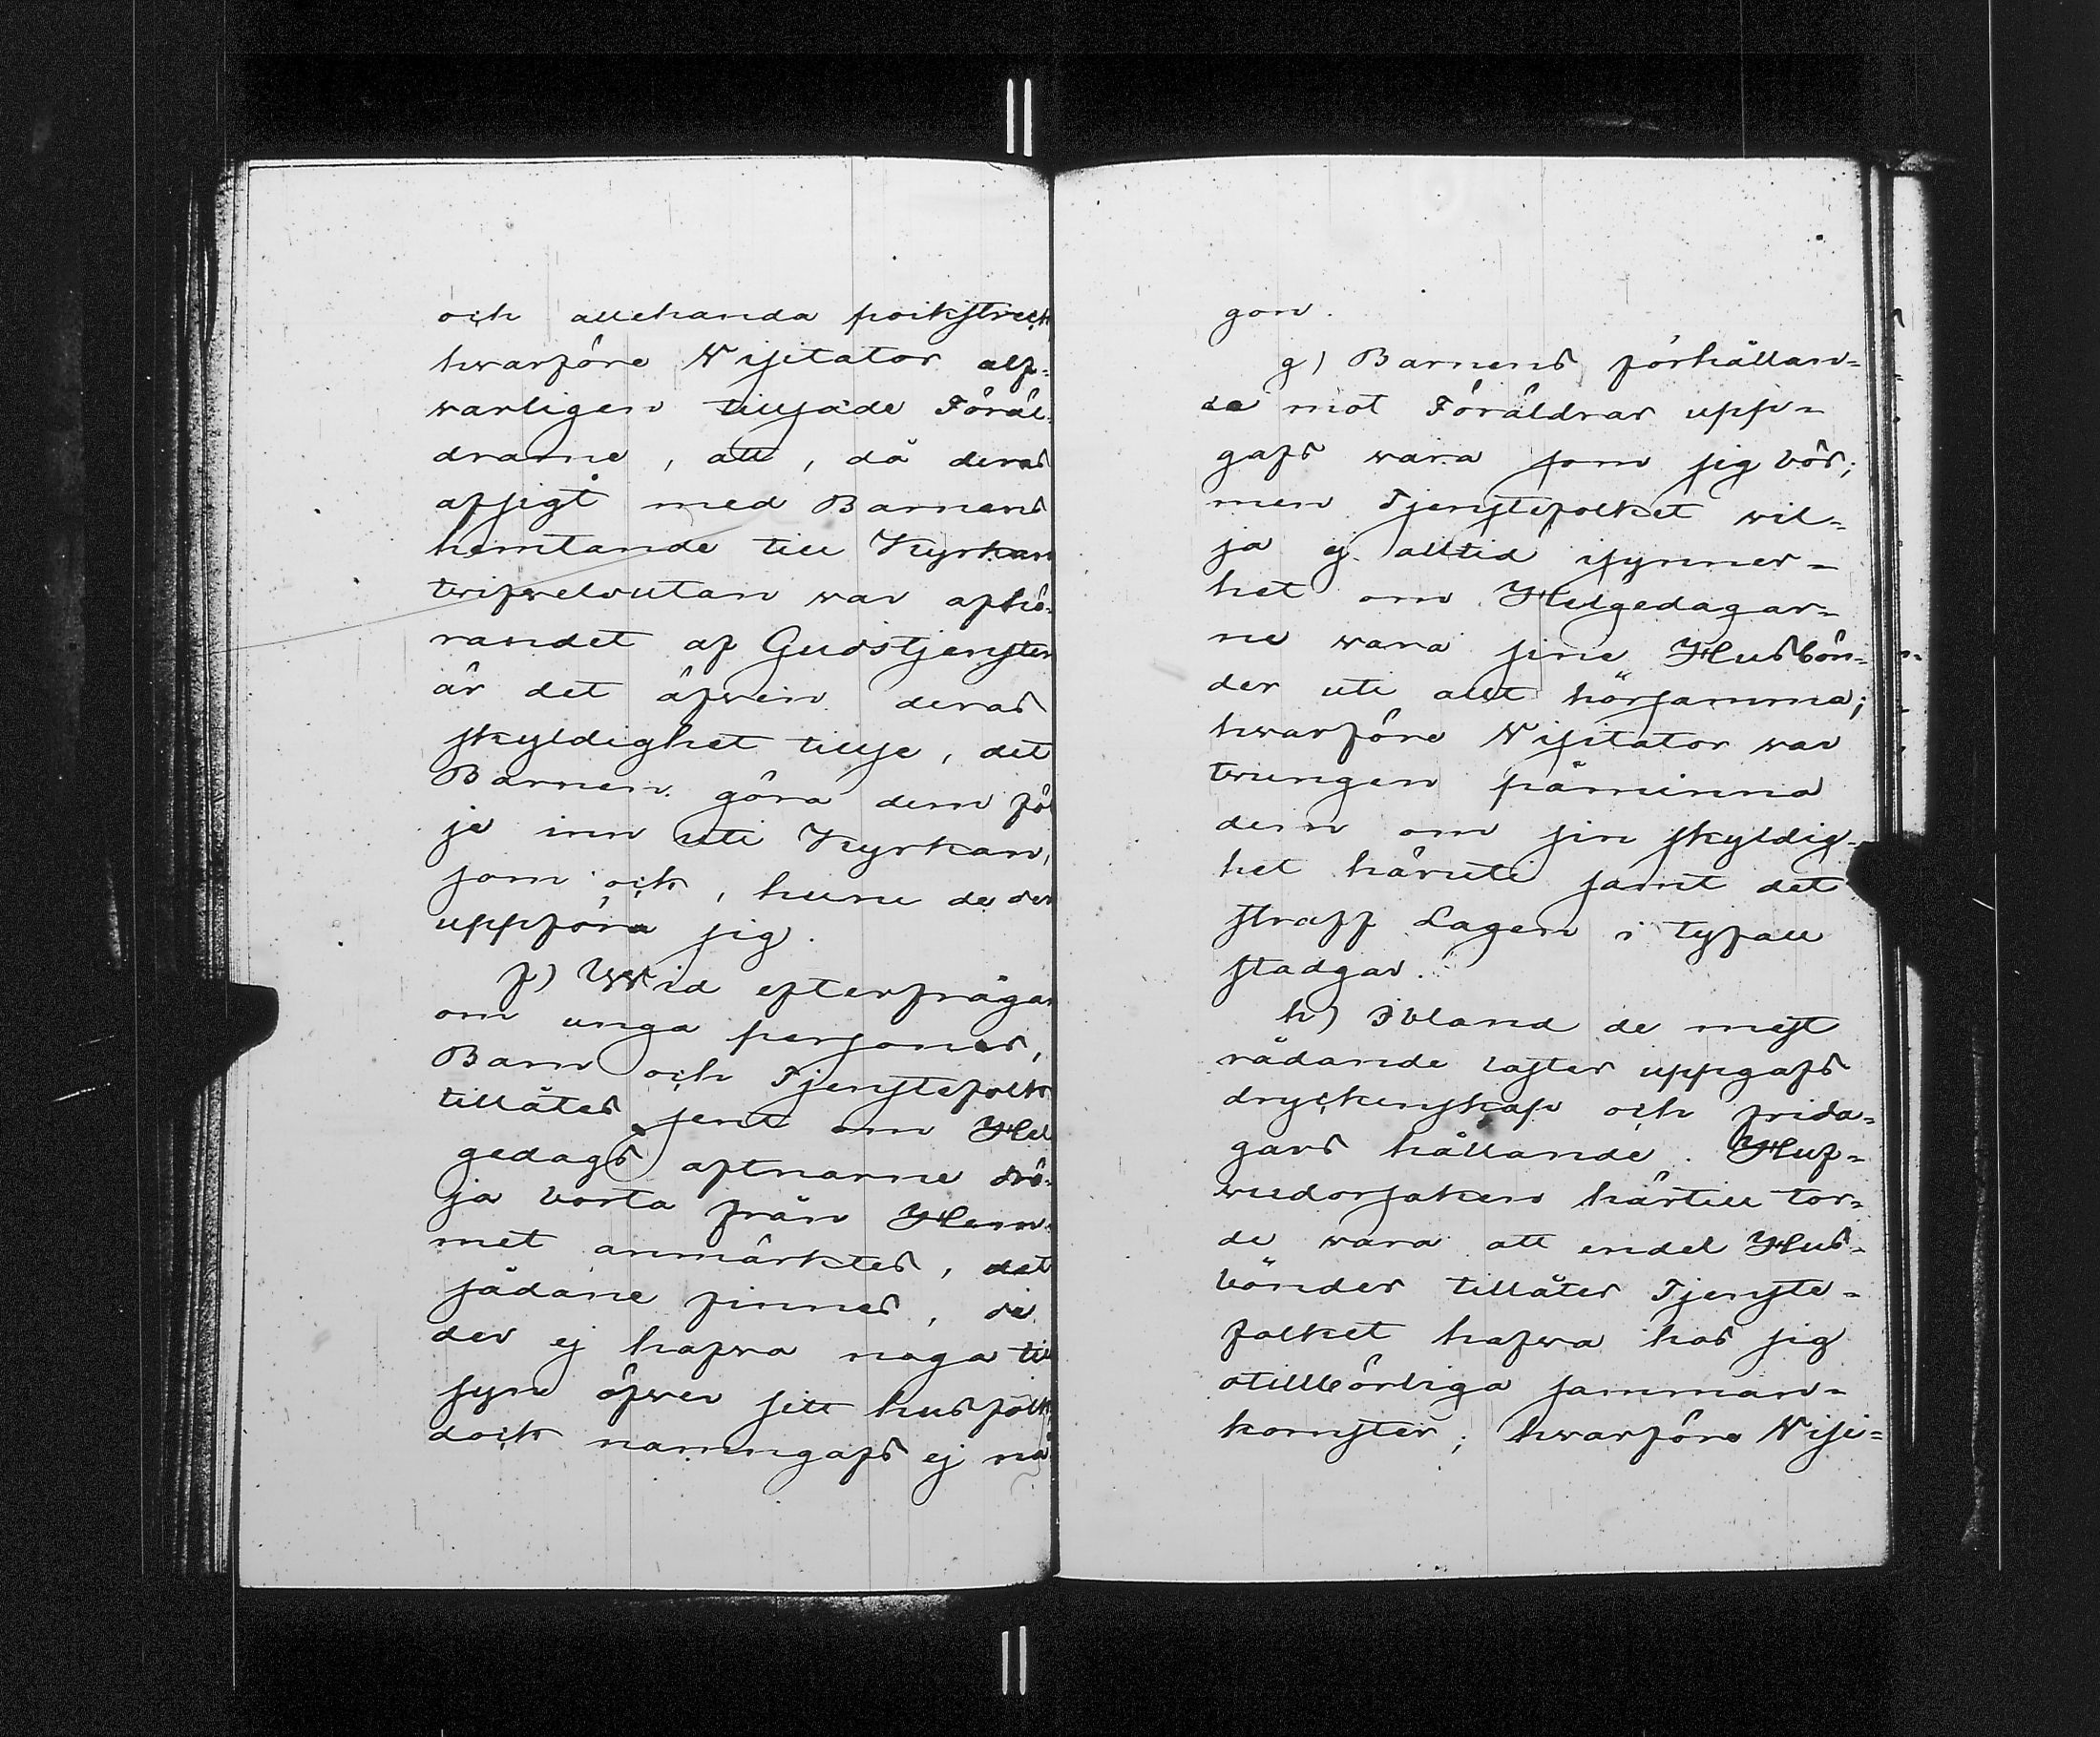 och allehanda poikstreck
hwarföre Visitator alf-
warligen tillsade Föräl-
drarne, att, då deras
afsigt med Barnens
hemtande till Kyrkan
twifwelsutan war afhö-
randet af Gudstjensten
är det äfwen deras
skyldighet tillse, det
Barnen göra dem föl
je inn uti Kyrkan,
som ock, huru de der
uppföra sig.
f) Wid efterfrågan
om unga personer,
Barn och Tjenstefolk
tillåtes sent om Hel
gedags aftnarne drö-
ja borta från Hem-
met anmärktes, det
sådane finnes, de
der ej hafwa noga till
syn öfwer sitt husfolk
dock namngafs ej nå
gon.
g) Barnens förhållan-
de mot Föräldrar upp-
gafs wara som sig bör;
men Tjenstefolket wil-
ja ej alltid isynner-
het om Helgedagar-
ne wara sine Husbön-
der uti allt hörsamma;
hwarföre Visitator war
twungen påminna
dem om sin skyldig-
het häruti samt det
straff Lagen i tyfall
stadgar.
h) Ibland de mest
rådande laster uppgafs
dryckenskap och frida-
gars hållande. Huf-
wudorsaken härtill tor-
de wara att endel Hus-
bönder tillåter Tjenste-
folket hafwa hos sig
otillbörliga samman-
komster; hwarföre Visi-